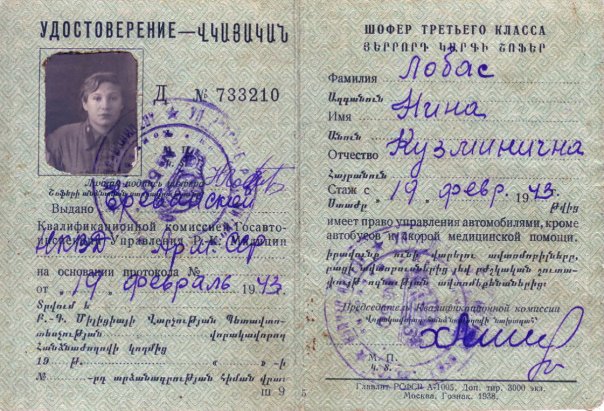 УДОСТОВЕРЕНИЕ — ՎԿԱՅԱԿԱՆ
Д № 733210
Личная подпись шофера
Выдано Ереванской
Квалификационной комиссией Госавто-
инспекции Управления Р.-К. Милиции
НКВД Арм. ССР
на основании протокола №
от 19 февраль 1943.
Տրվում է
Բ.-Գ. Միլիցիայի Վարչության Պետավտո-
տեսչության վորակավորզ
Հանձնաժողովի կողմից
19 թ. « » -ի
№ -րդ արձանագրության հիման վրա:
Ш 9
ШОФЕР ТРЕТЬЕГО КЛАССА
ՅԵՐՐՈՐԴ ԿԱՐԳԻ ՇՈՖԵՐ
Фамилия Лобас
Ազգանուն
Имя Нина
Անուն
Отчество Кузминична
Հայրանուն
Стаж с 19 февр. 1943.
Ստաժը 19 թվից
имеет право управления автомобилями, кроме
автобусов и скорой медицинской помощи.
իրավունք ունի վարելու ավտոմոբիլները,
բացի ավտոբուսներից յեվ բժշկական շտապ
ավտոմեքենաներից:
Председатель Квалификационной комиссии
М. П.
Կ. Տ.
Главлит РСФСР А-1005. Доп. тир. 3000 экз.
Москва, Гознак. 1938.
5